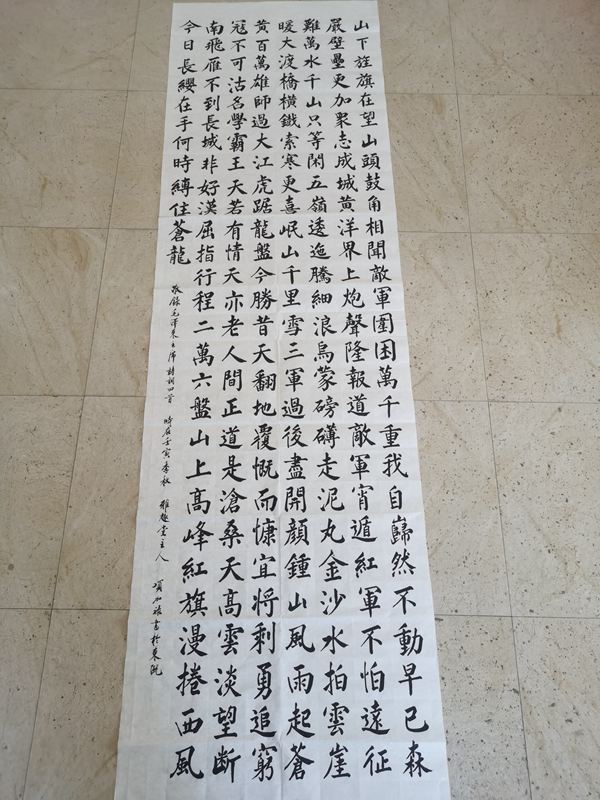 山下旌旗在望山頭鼓角相聞敵軍圍困萬千重我自巋然不動早已森
嚴壁壘更加眾志成城黃洋界上炮聲隆報道敵軍宵遁紅軍不怕遠征
難萬水千山只等閑五嶺逶迤騰細浪烏蒙磅礴走泥丸金沙水拍雲崖
暖大渡橋橫鐵索寒更喜岷山千里雪三軍過後盡開顏鍾山風雨起蒼
黃百萬雄師過大江虎踞龍盤今勝昔天翻地覆慨而慷宜將剩勇追窮
寇不可沽名學霸王天若有情天亦老人間正道是滄桑天高雲淡望斷
南飛雁不到長城非好漢屈指行程二萬六盤山上高峰紅旗漫捲西風
今日長纓在手何時縛住蒼龍
敬錄毛澤東主席詩詞四首 時在壬寅季秋 雅趣堂主人 項 書於東甌